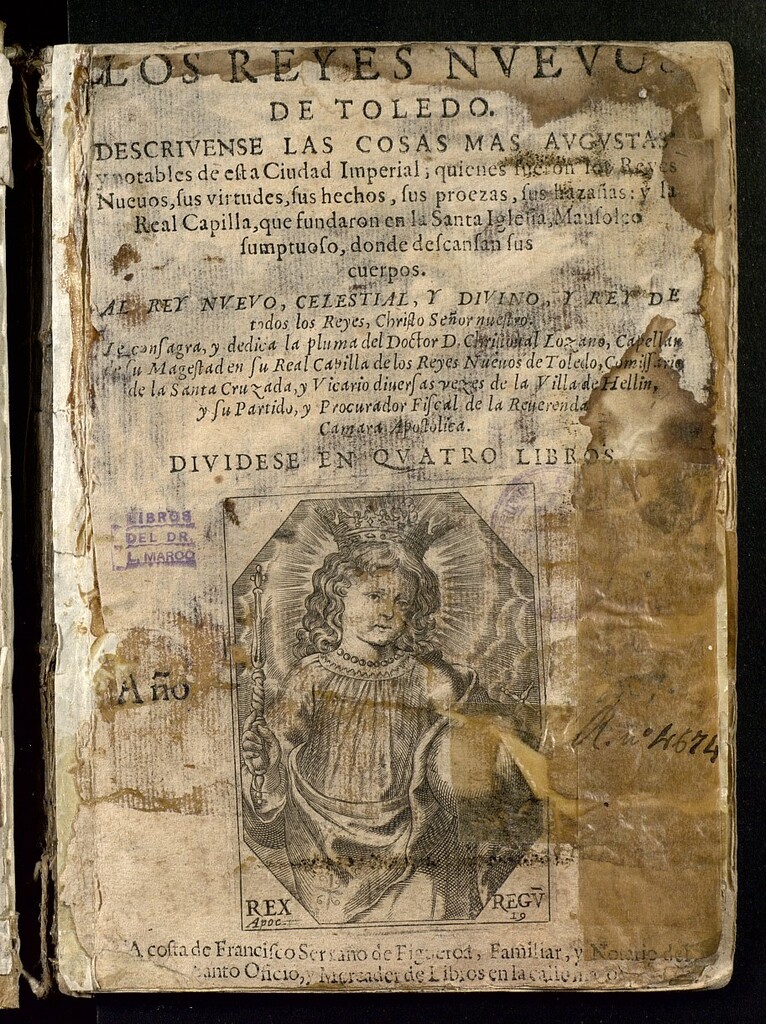 LOS REYES NVEVOS
DE TOLEDO.
DESCRIVENSE LAS COSAS MAS AVGVSTAS
y notables de esta Ciudad Imperial; quienes fueron los Reyes
Nueuos, sus virtudes, sus hechos, sus proezas, sus hazañas: y la
Real Capilla, que fundaron en la Santa Iglesia, Mausoleo
sumptuoso, donde descansan sus
cuerpos.
AL REY NVEVO, CELESTIAL, Y DIVINO, Y REY DE
todos los Reyes, Christo Señor nuestro.
Le consagra, y dedica la pluma del Doctor D. Christoual Lozano, Capellan
de su Magestad en su Real Capilla de los Reyes Nueuos de Toledo, Comissario
de la Santa Cruzada, y Vicario diuersas vezes de la Villa de Hellin,
y su Partido, y Procurador Fiscal de la Reuerenda
Camara Apostolica.
DIVIDESE EN QVATRO LIBROS
LIBROS
DEL DR.
L. MAROO
Año
A. nº 4674
REX REGV̄
Apoc. 19
A costa de Francisco Serrano de Figueroa, Familiar, y Notario del
Santo Oficio, y Mercader de Libros en la calle